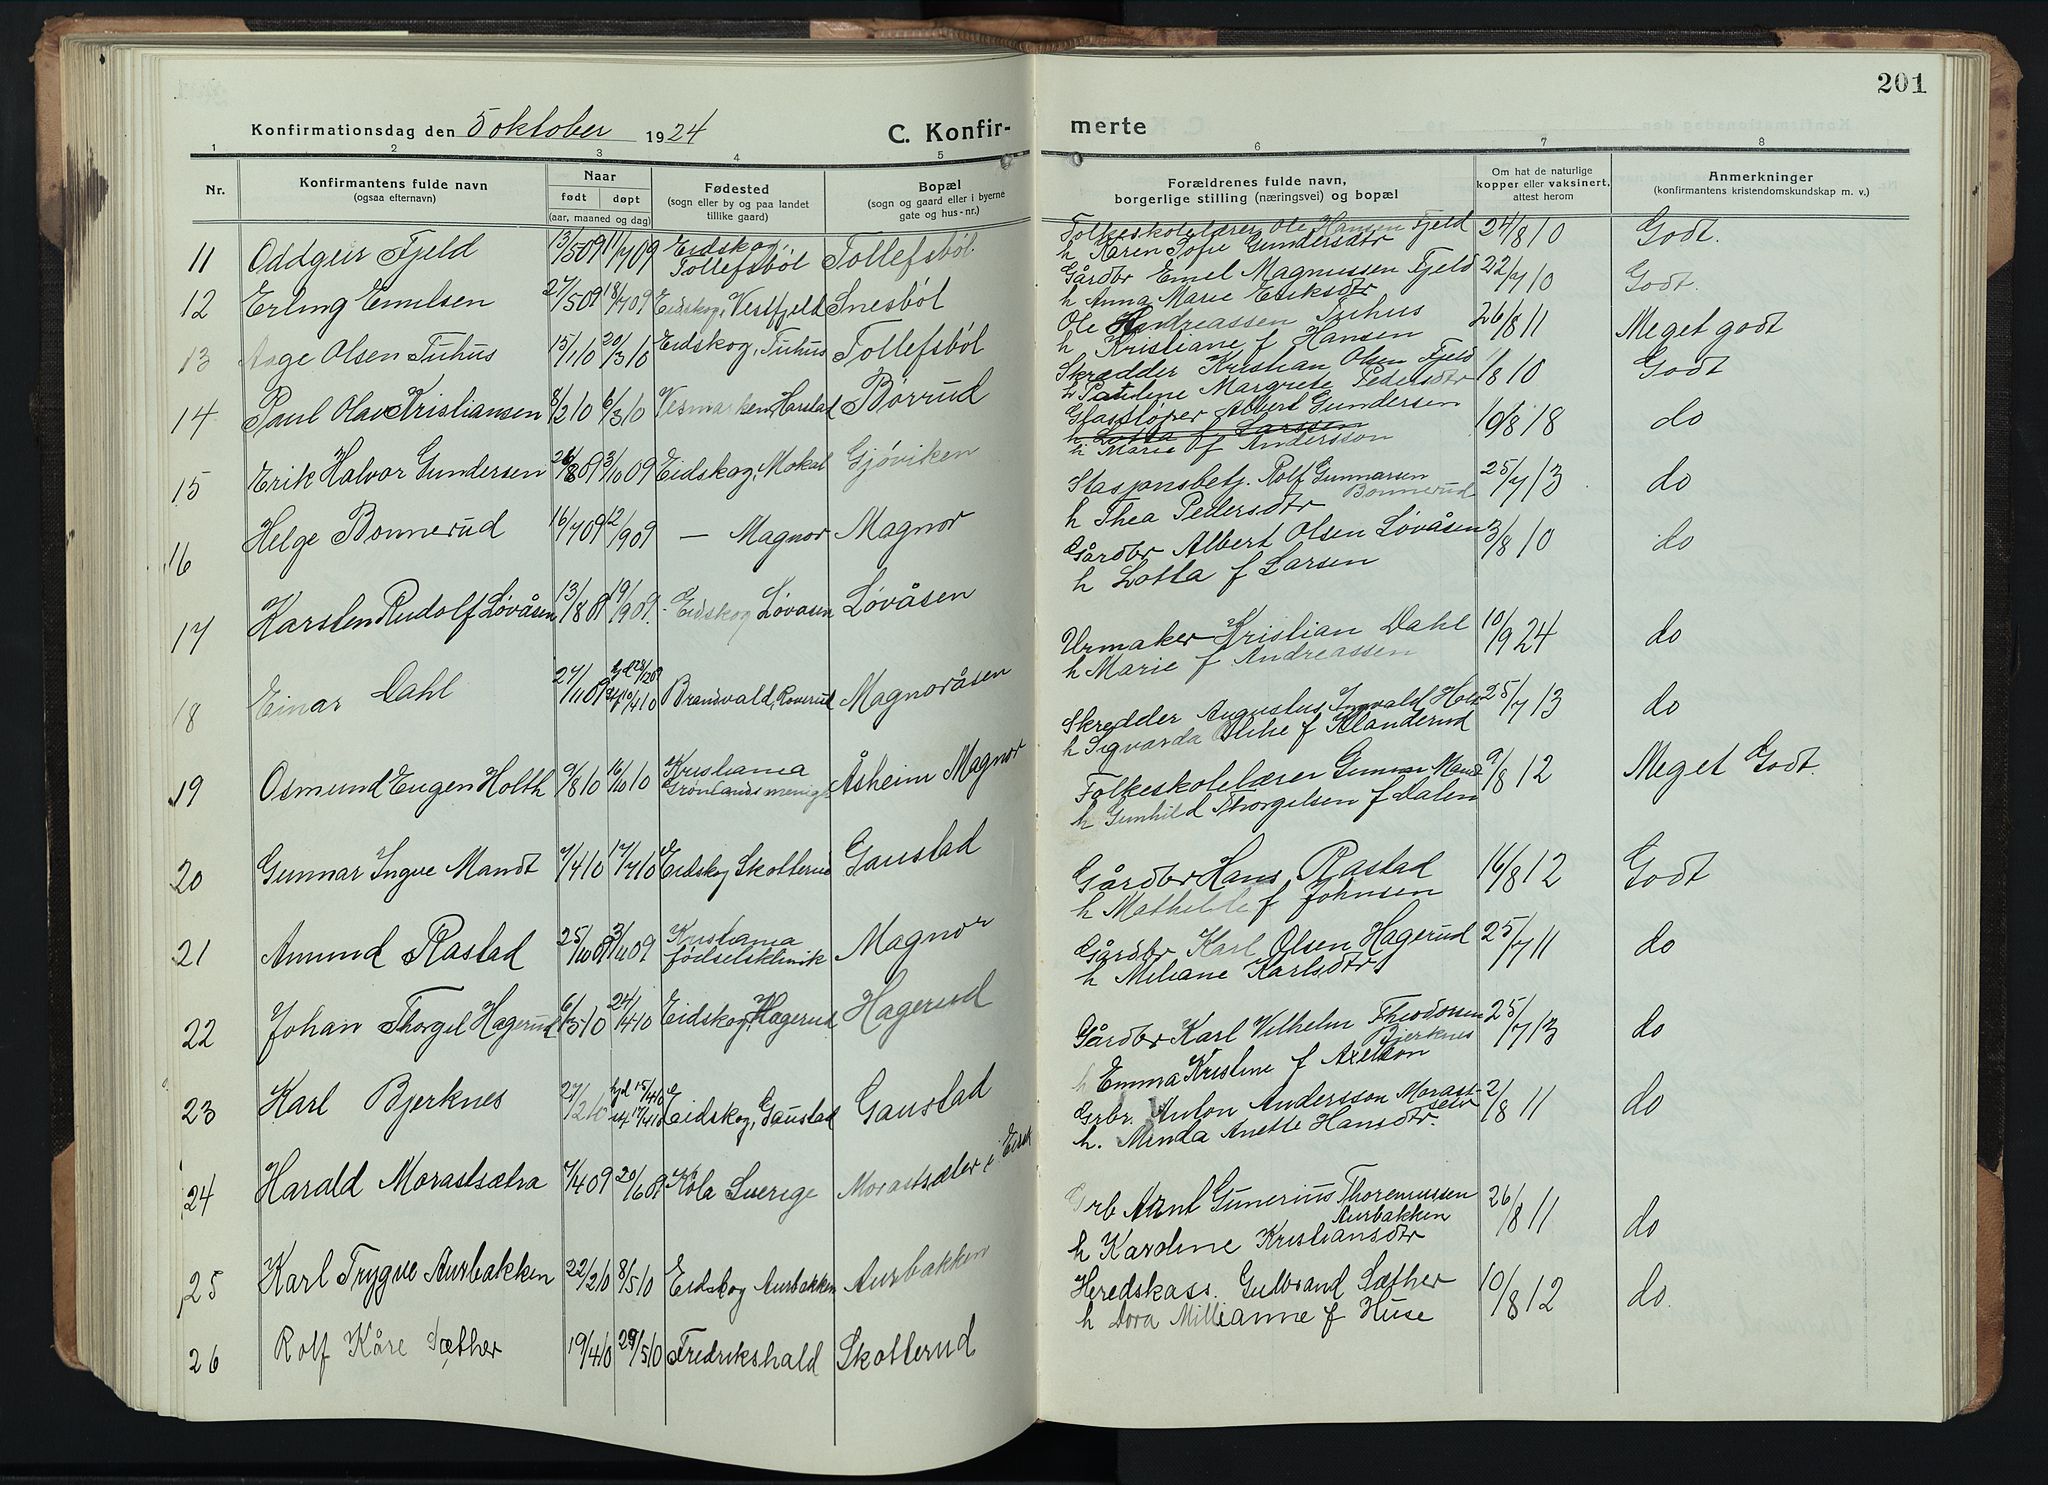 201
Konfirmationsdag den 5 oktober 1924 C. Konfir-
merte
1 2 3 4 5
6 7 8
Nr.
Konfirmantens fulde navn
(ogsaa efternavn)
Naar
født døpt
(aar, maaned og dag)
Fødested
(sogn eller by og paa landet
tillike gaard)
Bopæl
(sogn og gaard eller i byerne
gate og hus-nr.)
Forældrenes fulde navn,
borgerlige stilling (næringsvei) og bopæl
Om hat de naturlige
kopper eller vaksinert,
attest herom
Anmerkninger
(konfirmantens kristendomskundskap m. v.)
11 Oddgeir Fjeld 13/5 09 11/7 09 Eidskog, Tollefsböl Tollefsböl
Folkeskolelærer Ole Hansen Fjeld 24/8 10 Godt.
h Karen Sofie Gundersdtr
12 Erling Emilsen 27/5 09 18/7 09 Eidskog, Vestfjeld Snesböl
Gårdbr Emel Magnussen Fjeld 22/7 10 Godt.
h Anna Marie Eriksdtr
13 Aage Olsen Tuhus 15/1 10 20/3 10 Eidskog, Tuhus Tollefsböl
Ole Andreassen Tuhus 26/8 11 Meget godt
h Kristiane f Hansen
14 Paul Olav Kristiansen 8/2 10 6/3 10 Vesmarken, Harstad Börrud
Skrædder Kristian Olsen Fjeld 1/8 10 Godt
h Pauline Margrete Pedersdtr
15 Erik Halvor Gundersen 26/8 09 3/10 09 Eidskog, Mokal Gjöviken
Glassløper Albert Gundersen 10/8 18 do
h Lotta f Larssen
h Marie f Andersson
16 Helge Bonnerud 16/7 09 12/9 09 — Magnor Magnor
Stasjonsbetj. Rolf Gunnarsen 25/7 13 do
Bonnerud
h Thea Pedersdtr
17 Karsten Rudolf Løvåsen 13/8 09 19/9 09. Eidskog Løvåsen Løvåsen
Gårdbr Albert Olsen Løvåsen 3/8 10 do
h Lotta f Larsen
18 Einar Dahl 27/11 09 Brandvald, Roverud Magnoråsen
Urmaker Kristian Dahl 10/9 24 do
h Marie f Andreassen
19 Osmund Eugen Holth 9/8 10 16/10 10 Kristiania Grønlands menigh Åsheim Magnor
Skredder Augustus Ingvald Holt 25/7 13 do
h Sigvarda f Klanderud
20 Gunnar Ingve Mandt 7/4 10 17/7 10 Eidskog Skotterud Gaustad
Folkeskolelærer Gunnar Mandt 9/8 12 Meget Godt.
h Gunhild Thorgelsen f Dalen
21 Amund Rastad 25/10 09 3/11 09 Kristiania fødselsklinik Magnor
Gårdbr Hans Rastad 16/8 12 Godt
h Mathilde f Johnsen
22 Johan Thorgel Hagerud 6/3 10 24/4 10 Eidskog, Hagerud Hagerud
Gårdbr Karl Olsen Hagerud 25/7 11 do
h Miliane Karlsdtr
23 Karl Bjerknes 27/2 10 hjd 15/4 10 Eidskog, Gaustad Gaustad
Gårdbr Karl Vilhelm Theodorsen 25/7 13 do
Bjerknes
h Emma Kristine f Axelson
24 Harald Morastsætra 7/4 09 20/6 09 Köla Sverige Morastsæter i Eidsk
Grbr. Anton Andersson Morast- 2/8 11 do
sætr
h. Minda Anette Hansdtr.
25 Karl Trygve Aurbakken 22/2 10 8/5 10 Eidskog Aurbakken Aurbakken
Grb Gunerius Thoremussen 26/8 11 do
Aurbakken
h Karoline Kristiansdtr
26 Rolf Kåre Sæther 19/4 10 29/5 10 Fredrikshald Skotterud
Heredskass. Gulbrand Sæther 10/8 12 do.
h Dora Millianne f Huse